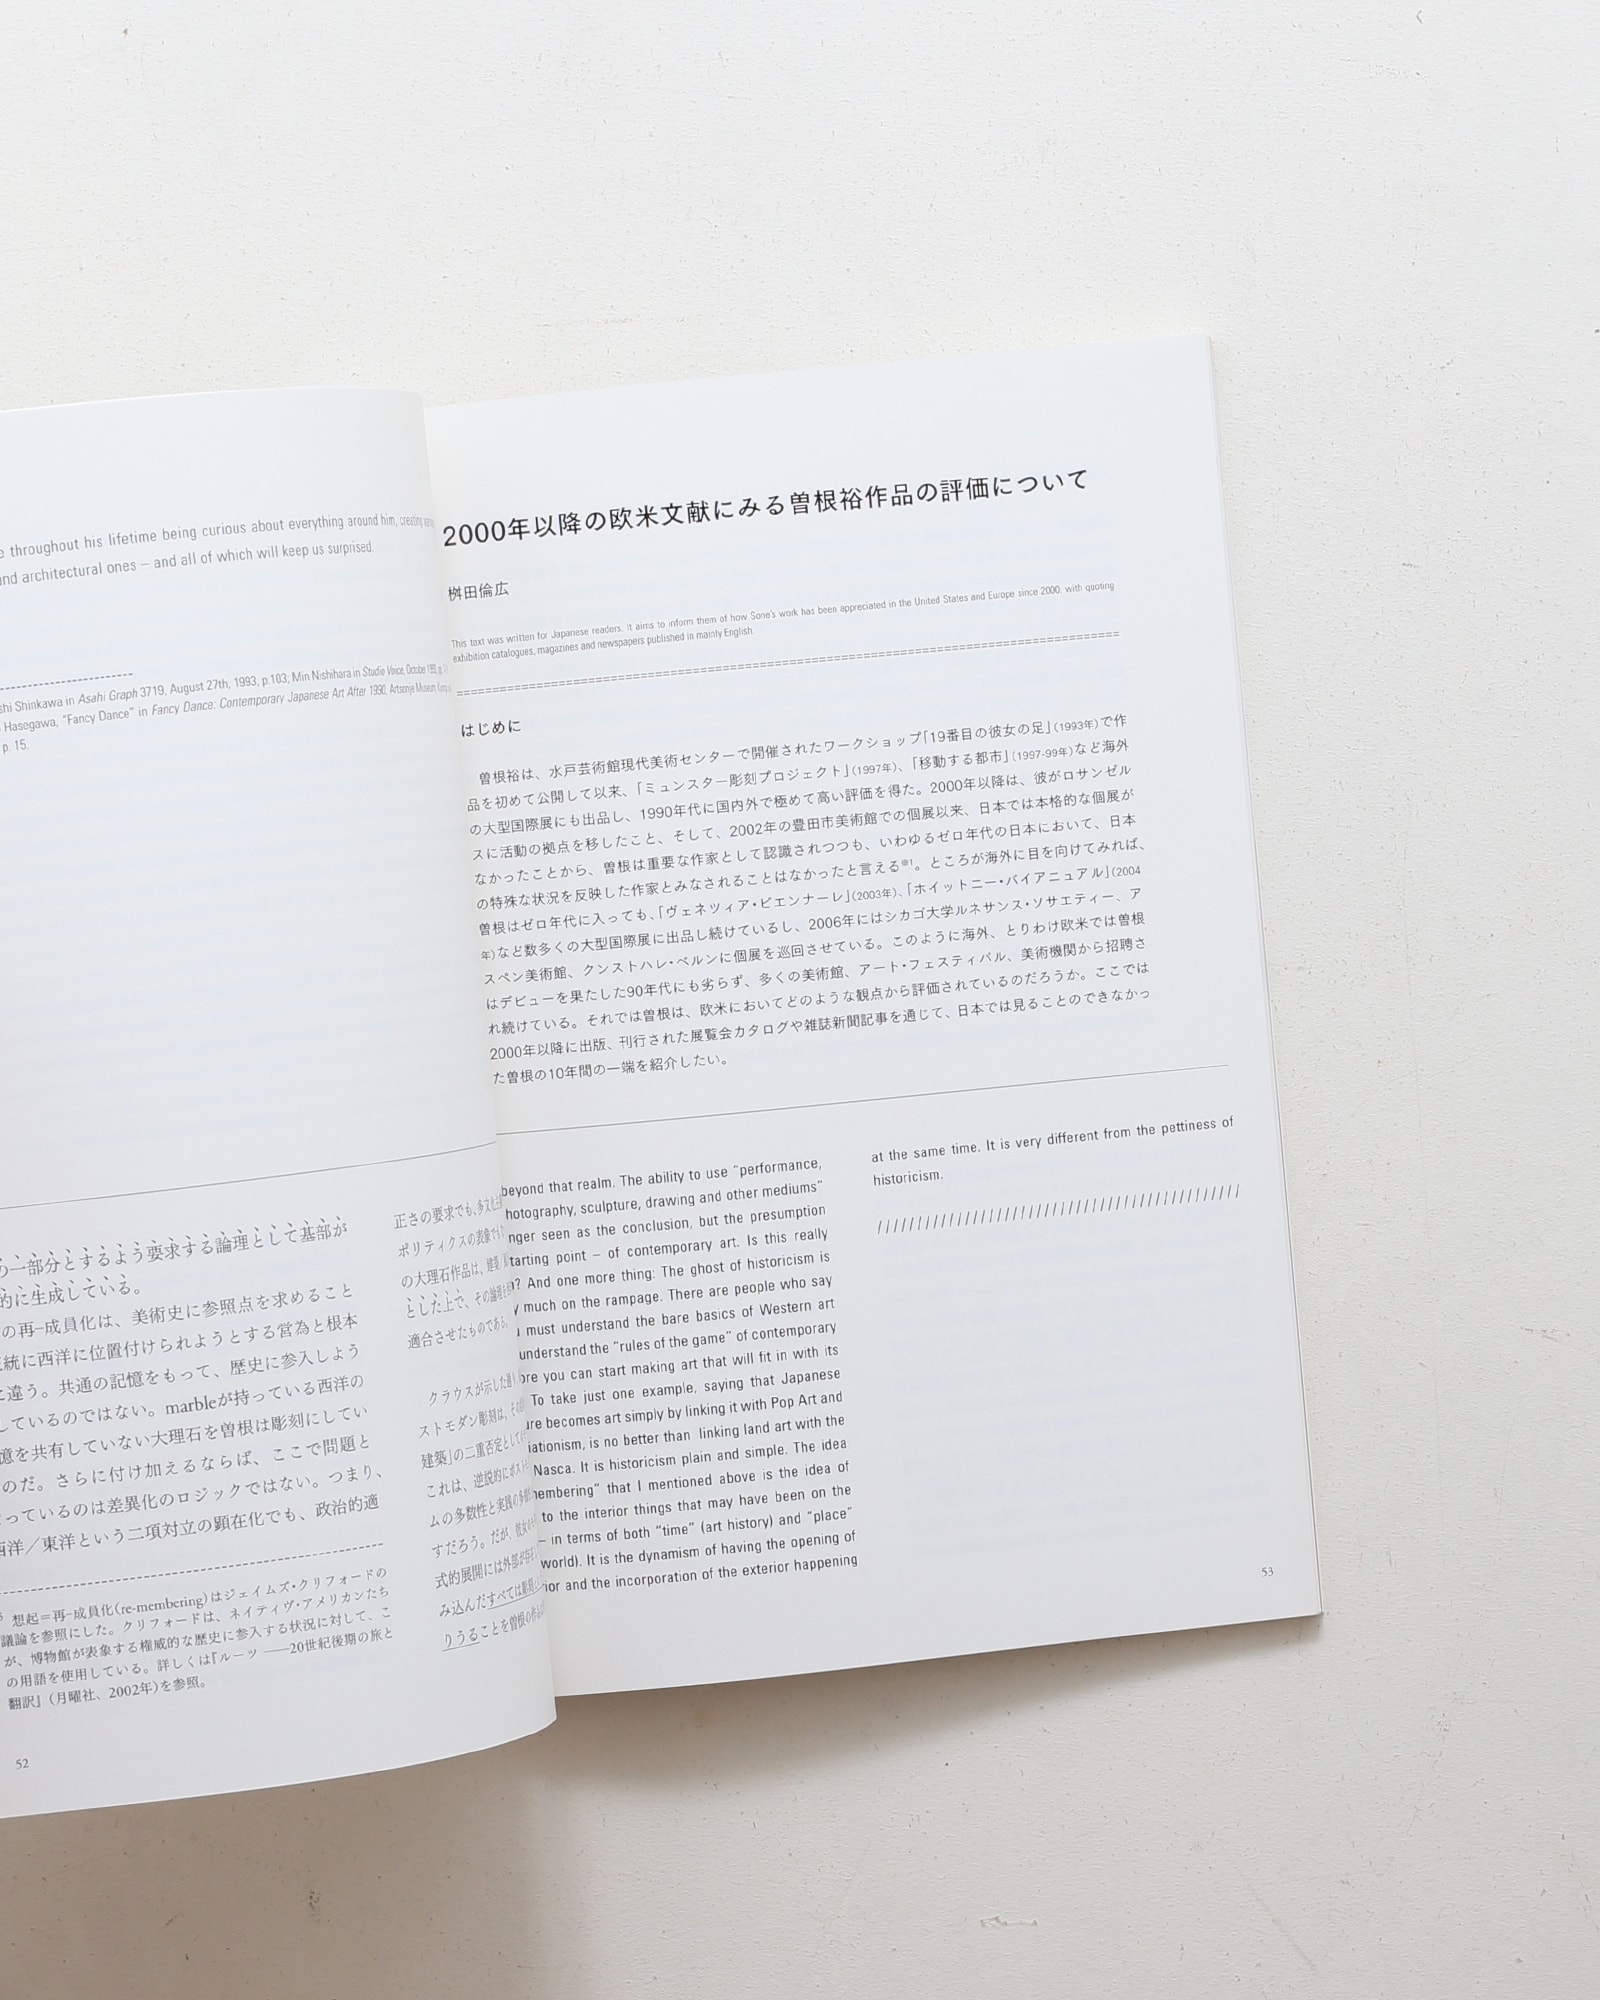 e throughout his lifetime being curious about everything around him, creating
and architectural ones – and all of which will keep us surprised.
shi Shinkawa in Asahi Graph 3719, August 27th, 1993, p.103; Min Nishihara in Studio Voice, October
Hasegawa, "Fancy Dance" in Fancy Dance: Contemporary Japanese Art After 1990, Artsonje Museum
p. 15.
一部分とするよう要求する論理として基部が
的に生成している。
の再−成員化は、美術史に参照点を求めること
統に西洋に位置付けられようとする営為と根本
違う。共通の記憶をもって、歴史に参入しよう
しているのではない。marbleが持っている西洋の
憶を共有していない大理石を曽根は彫刻にしてい
のだ。さらに付け加えるならば、ここで問題と
っているのは差異化のロジックではない。つまり、
西洋／東洋という二項対立の顕在化でも、政治的適
想起＝再−成員化(re-membering)はジェイムズ・クリフォードの
議論を参照にした。クリフォードは、ネイティヴ・アメリカンたち
が、博物館が表象する権威的な歴史に参入する状況に対して、こ
の用語を使用している。詳しくは『ルーツ ――20世紀後期の旅と
翻訳』(月曜社、2002年)を参照。
52
正さの要求でも、多文化
ポリティクスの表象でも
の大理石作品は、建築
とした上で、その論理を
適合させたものである。
クラウスが示した通り
ストモダン彫刻は、その
建築」の二重否定として
これは、逆説的にポスト
ムの多数性と実践の多
すだろう。だが、彼女の
式的展開には外部が存
み込んだすべては彫刻
りうることを曽根の作品
2000年以降の欧米文献にみる曽根裕作品の評価について
桝田倫広
This text was written for Japanese readers. It aims to inform them of how Sone's work has been appreciated in the United States and Europe since 2000, with quoting
exhibition catalogues, magazines and newspapers published in mainly English.
はじめに
曽根裕は、水戸芸術館現代美術センターで開催されたワークショップ「19番目の彼女の足」(1993年)で作
品を初めて公開して以来、「ミュンスター彫刻プロジェクト」(1997年)、「移動する都市」(1997-99年)など海外
の大型国際展にも出品し、1990年代に国内外で極めて高い評価を得た。2000年以降は、彼がロサンゼル
スに活動の拠点を移したこと、そして、2002年の豊田市美術館での個展以来、日本では本格的な個展が
なかったことから、曽根は重要な作家として認識されつつも、いわゆるゼロ年代の日本において、日本
の特殊な状況を反映した作家とみなされることはなかったと言える※1。ところが海外に目を向けてみれば、
曽根はゼロ年代に入っても、「ヴェネツィア・ビエンナーレ」(2003年)、「ホイットニー・バイアニュアル」(2004
年)など数多くの大型国際展に出品し続けているし、2006年にはシカゴ大学ルネサンス・ソサエティー、ア
スペン美術館、クンストハレ・ベルンに個展を巡回させている。このように海外、とりわけ欧米では曽根
はデビューを果たした90年代にも劣らず、多くの美術館、アート・フェスティバル、美術機関から招聘さ
れ続けている。それでは曽根は、欧米においてどのような観点から評価されているのだろうか。ここでは
2000年以降に出版、刊行された展覧会カタログや雑誌新聞記事を通じて、日本では見ることのできなかっ
た曽根の10年間の一端を紹介したい。
beyond that realm. The ability to use "performance,
hotography, sculpture, drawing and other mediums"
nger seen as the conclusion, but the presumption
tarting point – of contemporary art. Is this really
? And one more thing: The ghost of historicism is
y much on the rampage. There are people who say
must understand the bare basics of Western art
understand the "rules of the game" of contemporary
ore you can start making art that will fit in with its
To take just one example, saying that Japanese
re becomes art simply by linking it with Pop Art and
iationism, is no better than linking land art with the
Nasca. It is historicism plain and simple. The idea
membering" that I mentioned above is the idea of
to the interior things that may have been on the
– in terms of both "time" (art history) and "place"
world). It is the dynamism of having the opening of
ior and the incorporation of the exterior happening
at the same time. It is very different from the pettiness of
historicism.
53